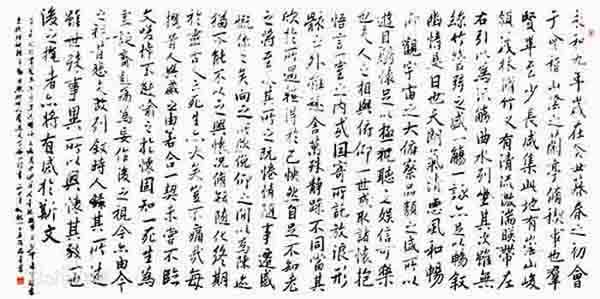 永和九年歲在癸丑暮春之初會
于會稽山陰之蘭亭修禊事也群
賢畢至少長咸集此地有崇山峻
領茂林修竹又有清流激湍映帶左
右引以為流觴曲水列坐其次雖無
絲竹管弦之盛一觴一詠亦足以暢敘
幽情是日也天朗氣清惠風和暢
仰觀宇宙之大俯察品類之盛所以
遊目騁懷足以極視聽之娛信可樂
也夫人之相與俯仰一世或取諸懷抱
悟言一室之內或因寄所託放浪形
骸之外雖趣舍萬殊靜躁不同當其
欣於所遇暫得於己快然自足不知老
之將至及其所之既惓情隨事遷感
慨係之矣向之所欣俛仰之間以為陳迹
猶不能不以之興懷況修短隨化終期
於盡古人云死生亦大矣豈不痛哉每
攬昔人興感之由若合一契未嘗不臨
文嗟悼不能喻之於懷固知一死生為
虛誕齊彭殤為妄作後之視今亦由今
之視昔悲夫故列敘時人錄其所述
雖世殊事異所以興懷其致一也
後之攬者亦將有感於斯文